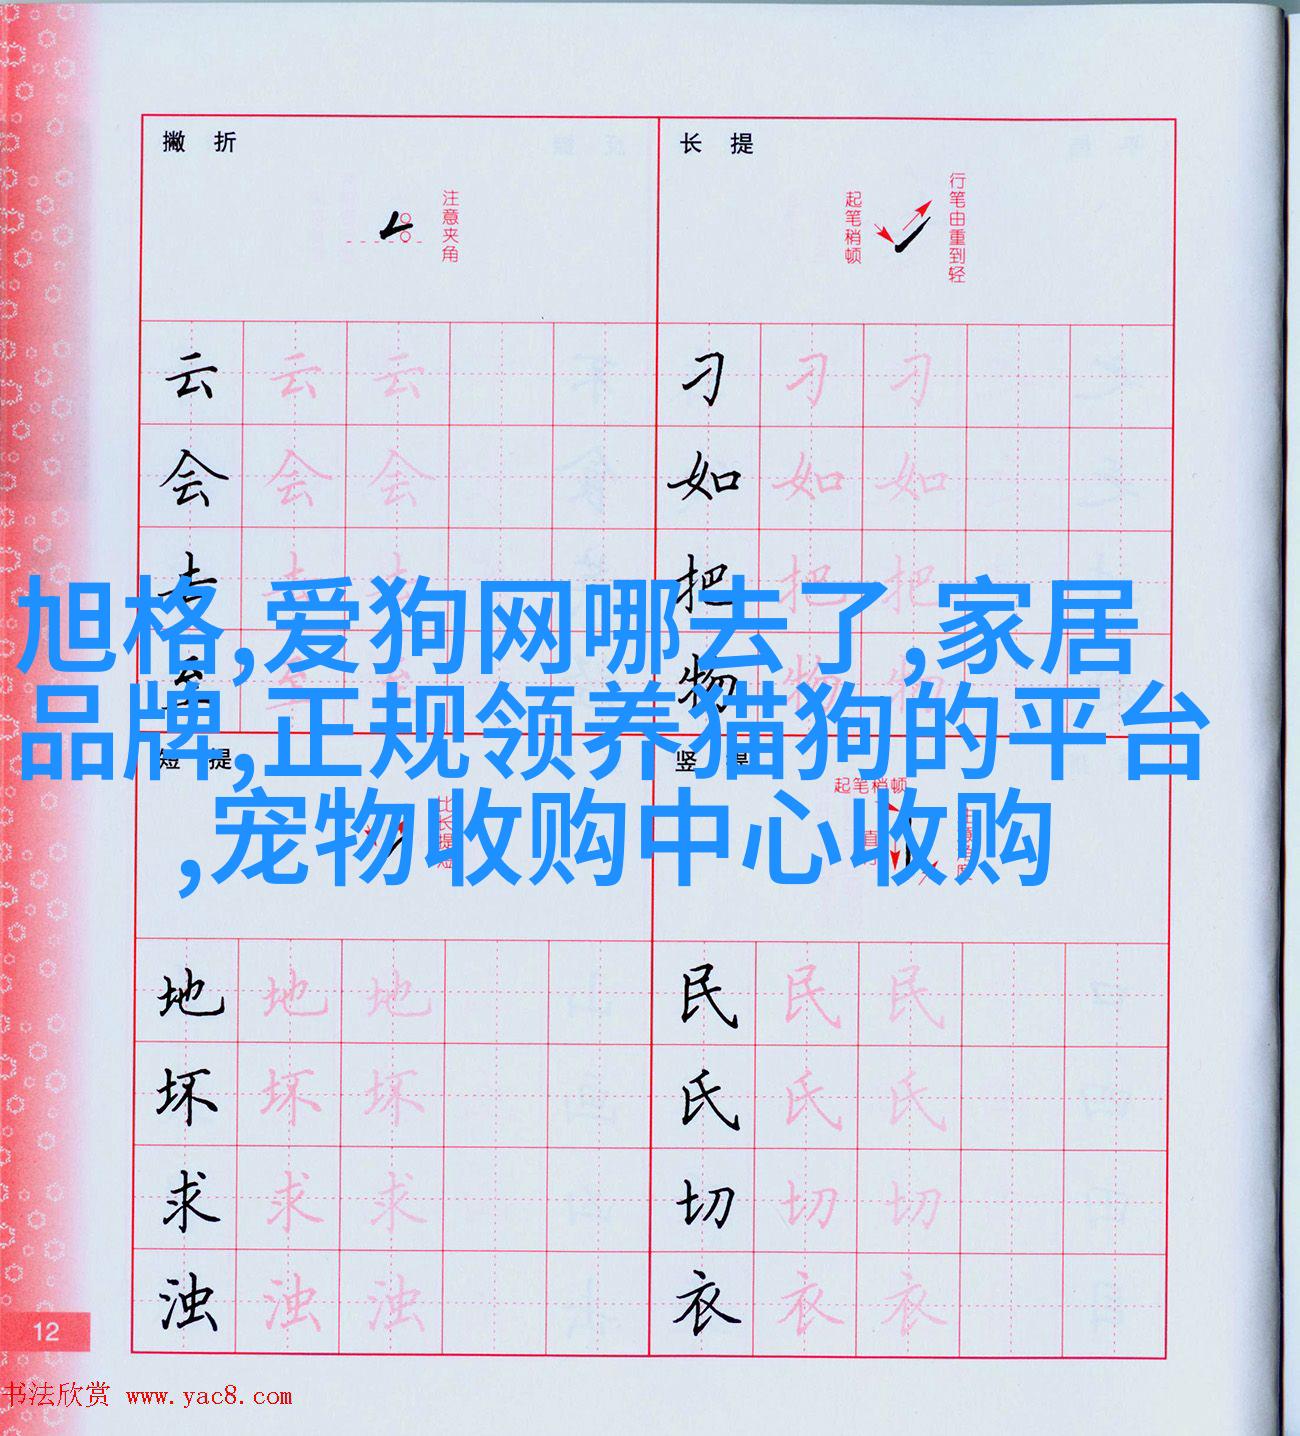 撇 折
注意夹角
长 提
起笔稍顿
行笔由重到轻
云 云 云
会 会 会
去 去 去
至 至 至
刁 刁 刁
如 如 如
把 把 把
物 物 物
旭格,爱狗网哪去了,家居
品牌,正规领养猫狗的平台
,宠物收购中心收购
短 提
比长提短
竖 提
起笔稍顿
地 地 地
坏 坏 坏
求 求 求
浊 浊 浊
民 民 民
氏 氏 氏
切 切 切
衣 衣 衣
12
书法欣赏 www.yac8.com